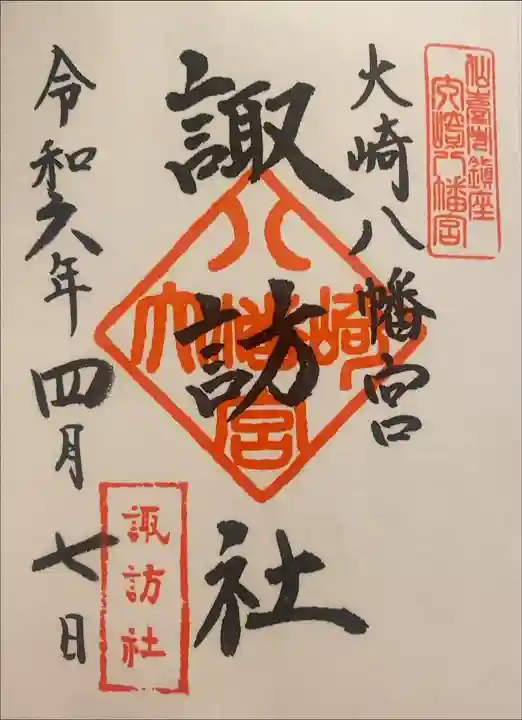 仙臺市鎮座
大崎八幡宮
大崎八幡宮
諏訪社
大崎八幡宮
諏訪社
令和六年四月七日